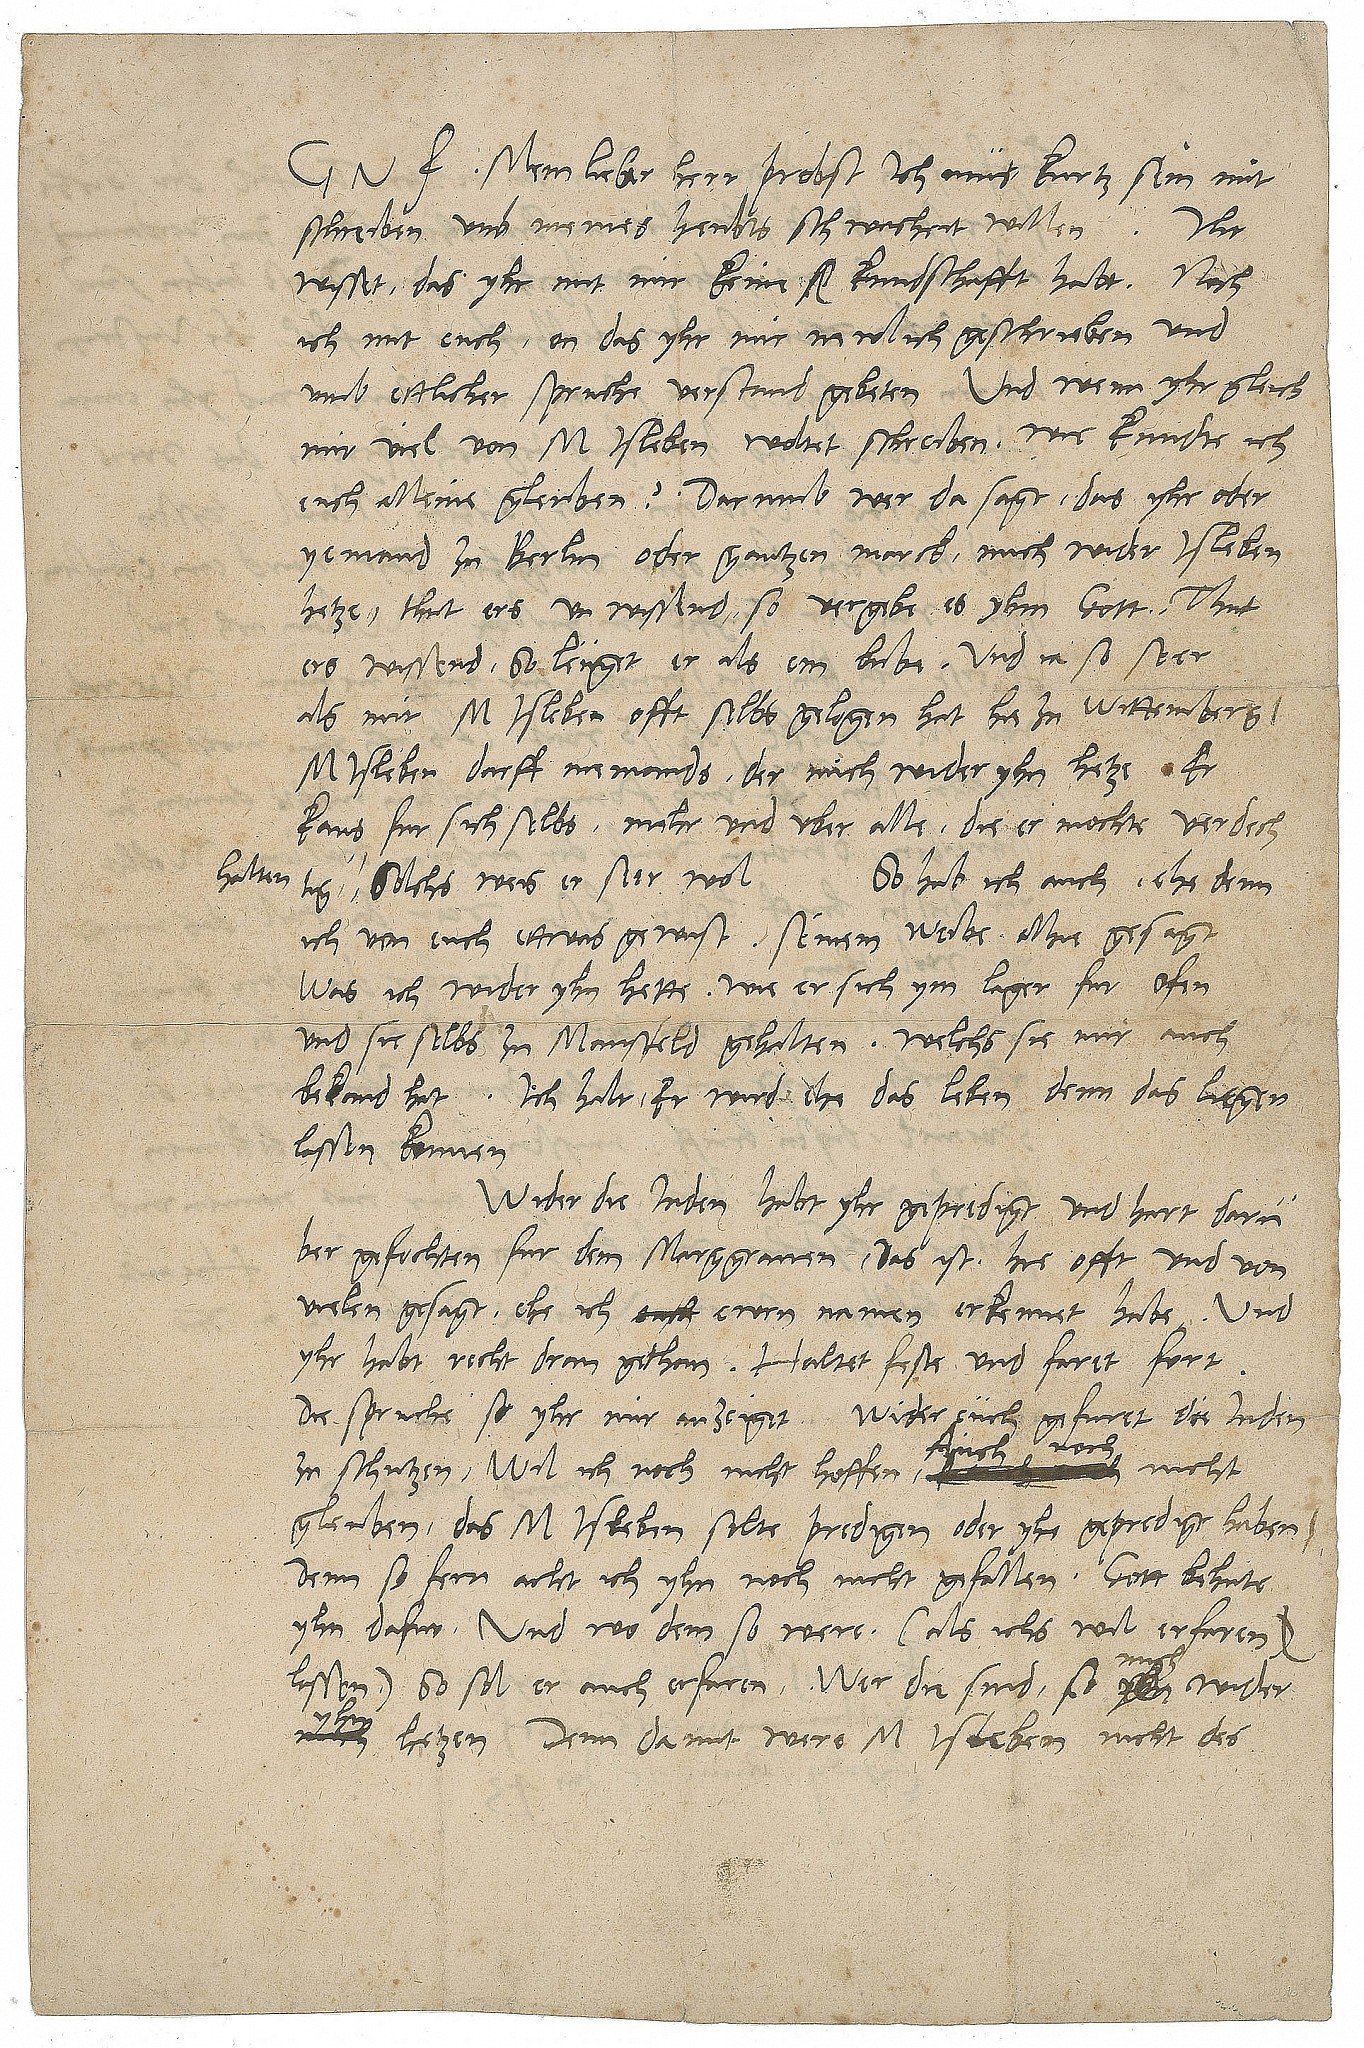 G N f. Mein lieber herr probst Ich mus kurtz sein mit
schreiben vmb meines heubts schwacheit willen. Ihr
wisset, das yhr mit mir keine kundschafft habt. Noch
ich mit euch, on das yhr mir newlich geschrieben vnd
vmb ettlicher spruche verstand gebeten Vnd wenn yhr gleich
mir viel von M Isleben woltet schreiben. wie kundte ich
euch alleine gleuben? Darumb wer da sagt, das yhr oder
yemand zu Berlin oder gantzen marck, mich wider Isleben
hetze, thut ers vnwissend, so vergebe es yhm Gott. Thut
ers wissend, So leuget er als ein bube. Vnd ia so seer
als mir M Isleben offt selbs gelogen hat hie zu Wittemberg/
M Isleben darff niemands, der mich wider yhn hetze. Er
kans fur sich selbs, mehr vnd vber alle, die er mochte verdech
halten tig, Solchs weis er seer wol So hab ich auch, ehe denn
ich von euch ettwas gewust, seinem Weibe alhie gesagt
Was ich wider yhn hette. wie er sich ym lager fur Ofen
vnd sie selbs zu Mansfeld gehalten. welchs sie mir auch
bekand hat. Ich halt, Er wird ehe das leben denn das liegen
lassen konnen
Wider die Juden habt yhr gepredigt vnd hart daru
ber gefochten fur dem Marggrauen, Das ist. hie offt vnd von
vielen gesagt, ehe ich ewrn namen erkennet habe. Vnd
yhr habt recht dran gethan. Haltet feste vnd faret fort.
Die spruche so yhr mir anzeiget Wider euch gefuret die Juden
zu schutzen, Wil ich noch nicht hoffen, Auch noch nicht
gleuben, das M Isleben solte predigen oder yhe gepredigt haben/
Denn so fern acht ich yhn noch nicht gefallen. Gott behute
yhn dafur. Vnd wo dem so were. (als ichs wil erfaren
lassen) So sol er auch erfaren, Wer die sind, so mich wider
yhn hetzen Denn damit were M Isleben nicht des